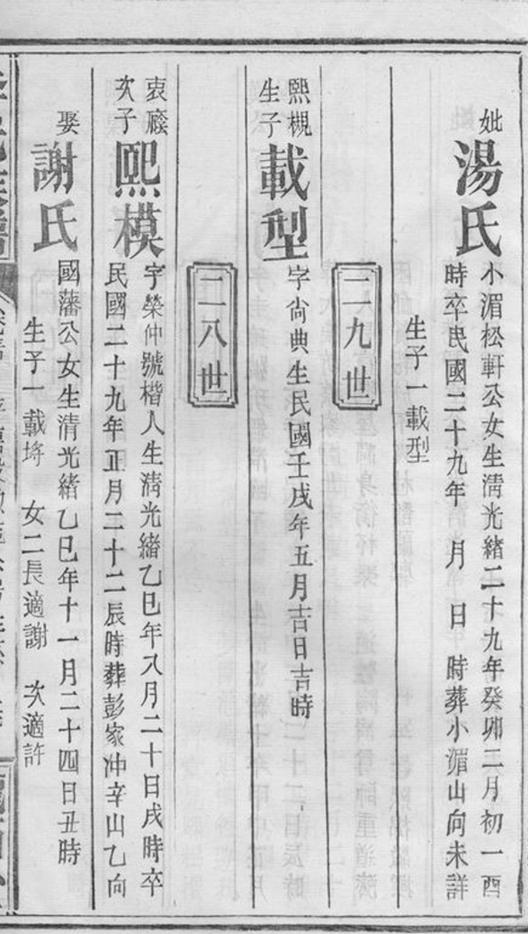 妣湯氏小湄松軒公女生清光緒二十九年癸卯二月初一酉
時卒民國二十九年 月 日 時葬小湄山向未詳
生子一載型
二九世
熙槻
生子
載型字尙典生民國壬戌年五月吉日吉時
二八世
衷廢
次子
熙模字榮仲號楷人生清光緒乙巳年八月二十日戌時卒
民國二十九年正月二十二辰時葬彭家冲辛山乙向
娶謝氏國藩公女生清光緒乙巳年十一月二十四日丑時
生子一載埁 女二長適謝 次適許